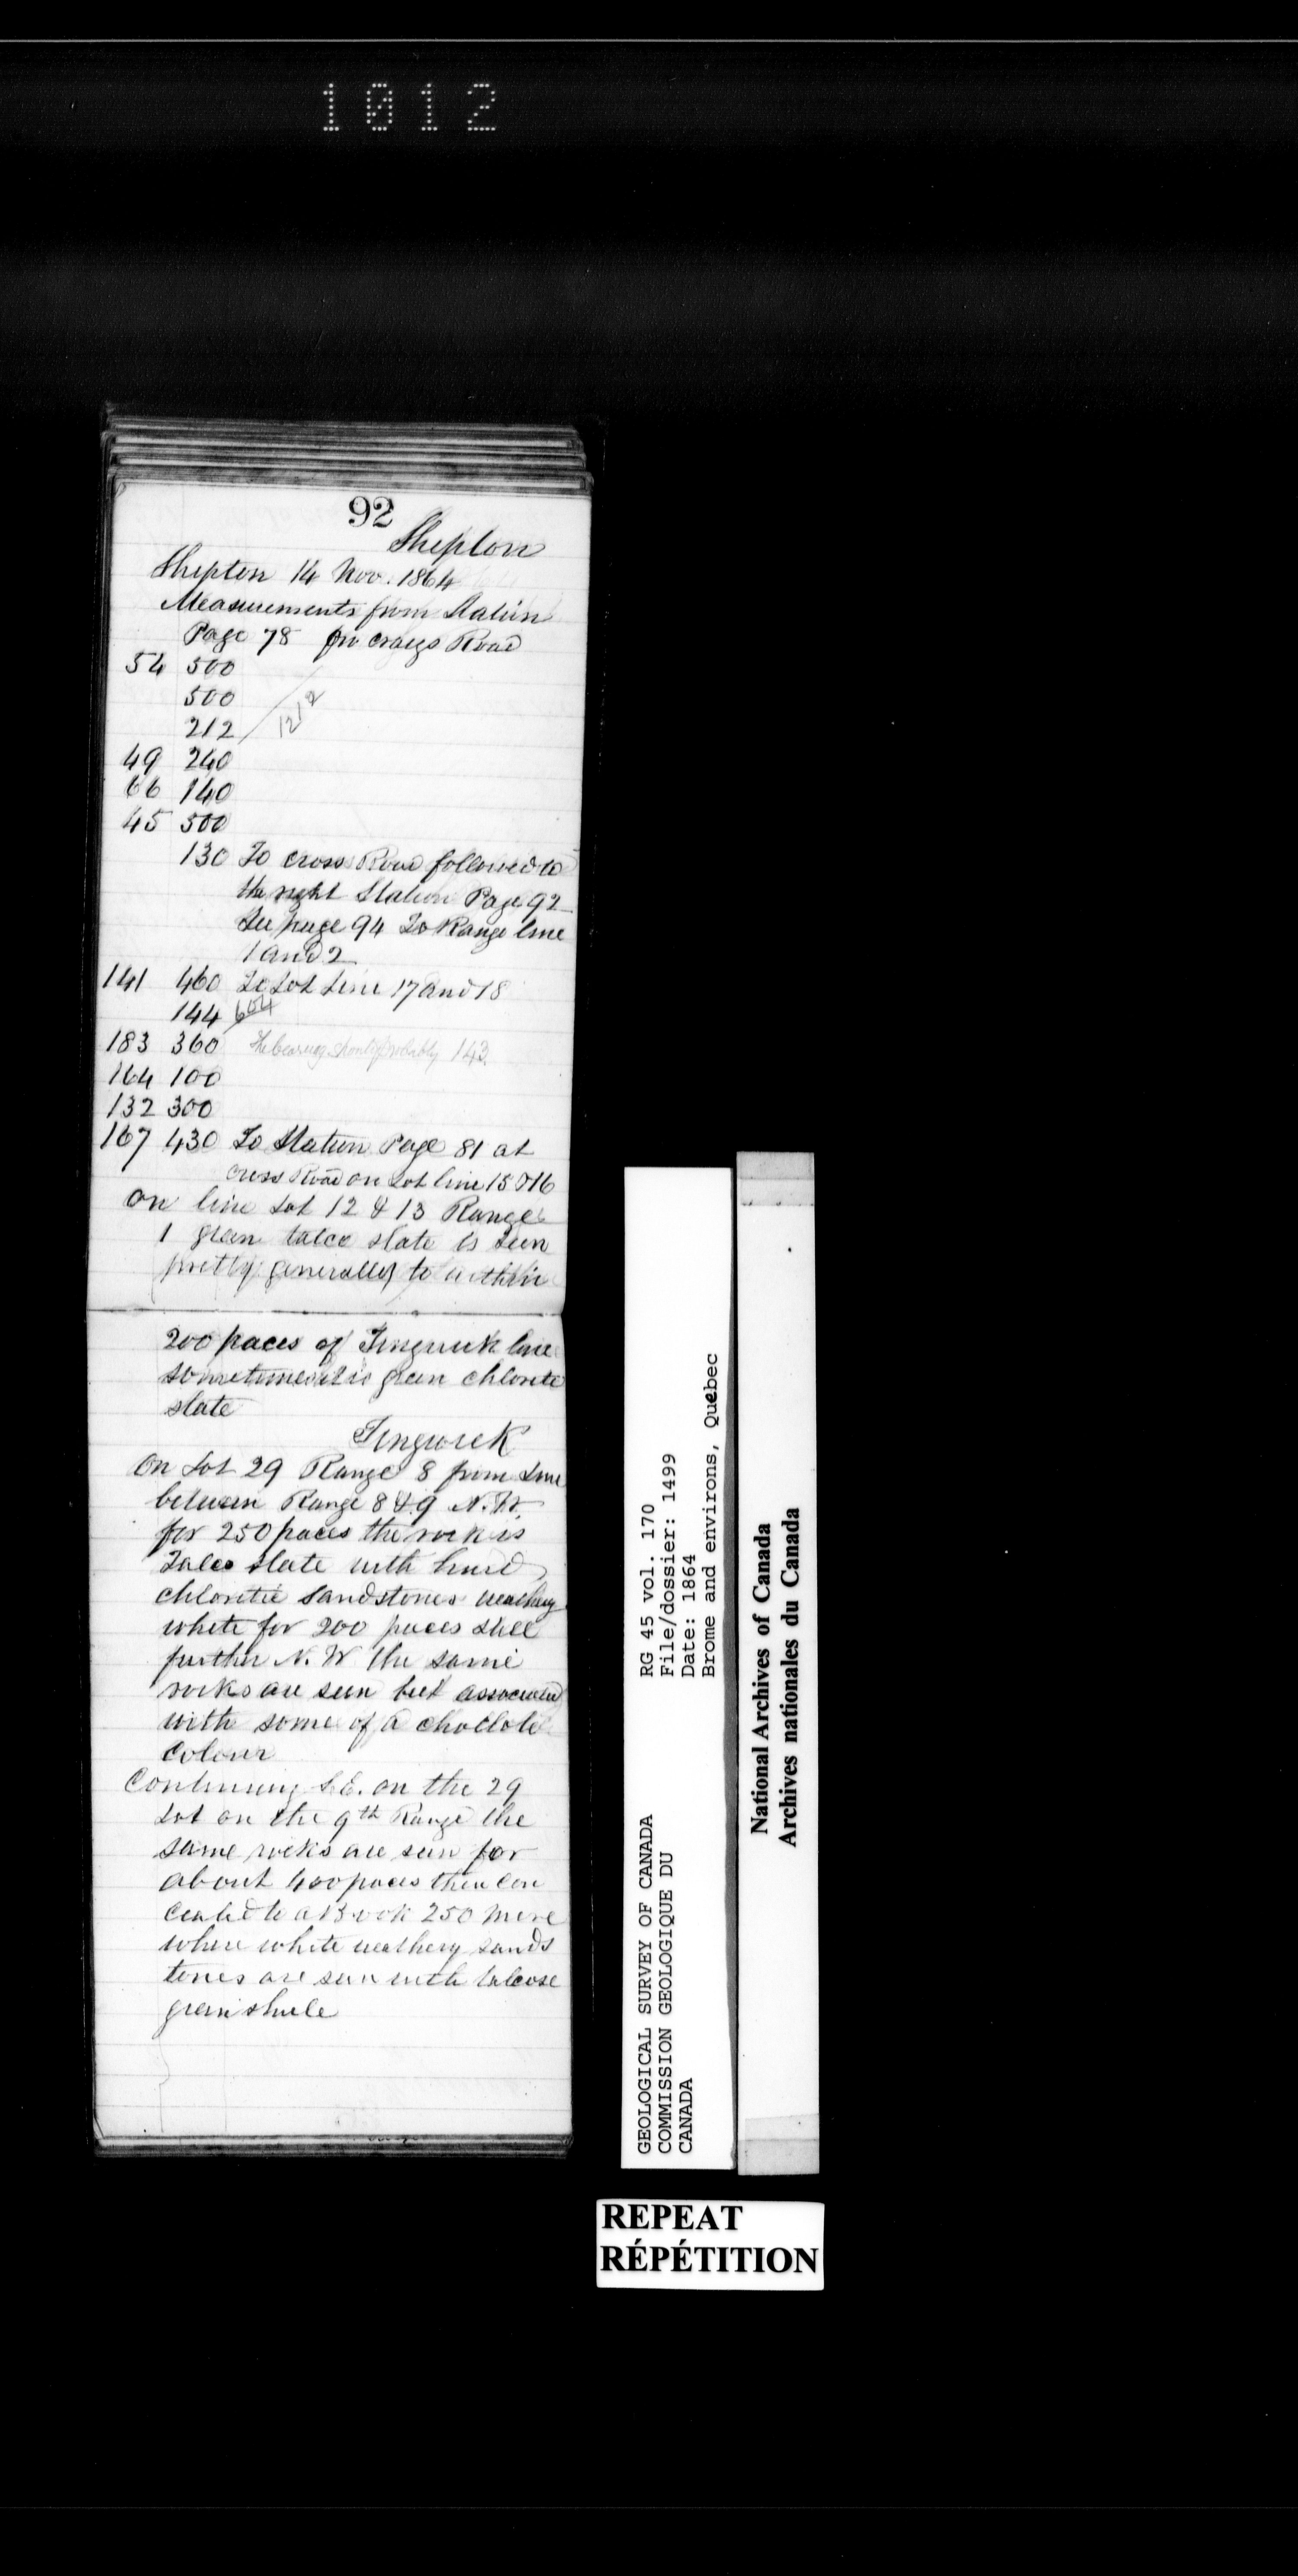 1012
92
Shipton
Shipton 14 Nov. 1864
Measurements from Station
Page 78 on Craigs Road
54 500
500
212 1212
49 240
66 140
45 500
130 To cross Road followed to
the right Station Page 92
See page 94 To Range line
1 and 2
141 460 To Lot Line 17 and 18
144 604
183 360 The bearing should probably 143
164 100
132 300
167 430 To Station Page 81 at
cross Road on Lot line 15 & 16
on line Lot 12 & 13 Range
1 green talco slate is seen
pretty generally to within
200 paces of Tingwick line
sometimes it is green chlorite
slate
Tingwick
On Lot 29 Range 8 from Line
between Range 8 & 9 N.W.
for 250 paces the rock is
Talco slate with hard
chloritic sandstones weathery
white for 200 paces still
further N.W the same
rocks are seen but associated
with some of a choclote
colour
Continuing S.E. on the 29
Lot on the 9th Range the
same rocks are seen for
about 400 paces then con
cealed to a Brook 250 more
where white weathery sands
tones are seen with talcose
green shale
GEOLOGICAL SURVEY OF CANADA
COMMISSION GEOLOGIQUE DU
CANADA
RG 45 vol. 170
File/dossier: 1499
Date: 1864
Brome and environs, Québec
National Archives of Canada
Archives nationales du Canada
REPEAT
RÉPÉTITION